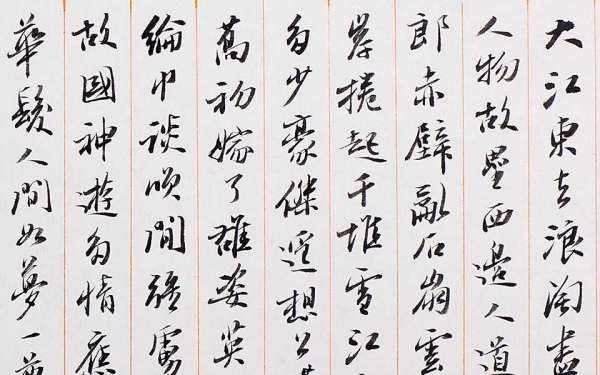 大江東去浪淘盡
人物故壘西邊人道
郎赤壁亂石崩雲
岸捲起千堆雪江
多少豪傑遥想公
喬初嫁了雄姿英
綸巾談咲間強虜
故國神遊多情應
華髮人間如夢一